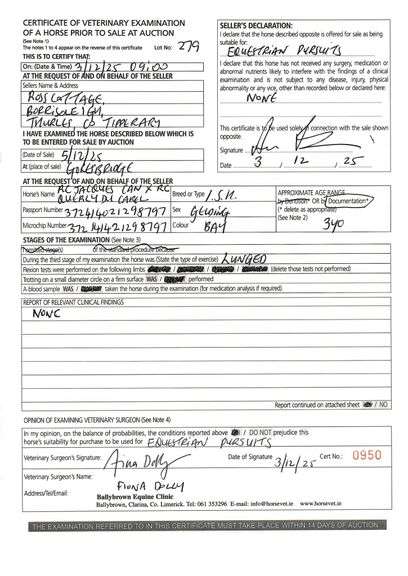 CERTIFICATE OF VETERINARY EXAMINATION
OF A HORSE PRIOR TO SALE AT AUCTION
(See Note 1)
The notes 1 to 4 appear on the reverse of this certificate Lot No: 279
THIS IS TO CERTIFY THAT:
On: (Date & Time) 3/12/25 09:00
AT THE REQUEST OF AND ON BEHALF OF THE SELLER
Sellers Name & Address
ROSS COTTAGE,
BORRISOLEIGH,
THURLES, CO TIPPERARY
I HAVE EXAMINED THE HORSE DESCRIBED BELOW WHICH IS
TO BE ENTERED FOR SALE BY AUCTION
(Date of Sale) 5/12/25
At (place of sale) GORESBRIDGE
SELLER'S DECLARATION:
I declare that the horse described opposite is offered for sale as being
suitable for:
EQUESTRIAN PURSUITS
I declare that this horse has not received any surgery, medication or
abnormal nutrients likely to interfere with the findings of a clinical
examination and is not subject to any disease, injury, physical
abnormality or any vice, other than recorded below or declared here:
NONE
This certificate is to be used solely in connection with the sale shown
opposite.
Signature
Date 3 12 25
AT THE REQUEST OF AND ON BEHALF OF THE SELLER
Horse's Name RC JACQUES CAN X RC
Breed or Type I.S.H.
Passport Number 372414021298797 Sex GELDING
Microchip Number 372141421298797 Colour BAY
APPROXIMATE AGE RANGE
by Dentition* OR by Documentation*
(* delete as appropriate)
(See Note 2)
3yo
STAGES OF THE EXAMINATION (See Note 3)
of the standard procedure
During the third stage of my examination the horse was (State the type of exercise) LUNGED
Flexion tests were performed on the following limbs (delete those tests not performed)
Trotting on a small diameter circle on a firm surface WAS / performed
A blood sample WAS / taken from the horse during the examination (for medication analysis if required)
REPORT OF RELEVANT CLINICAL FINDINGS
NONE
Report continued on attached sheet / NO
OPINION OF EXAMINING VETERINARY SURGEON (See Note 4)
In my opinion, on the balance of probabilities, the conditions reported above / DO NOT prejudice this
horse's suitability for purchase to be used for EQUESTRIAN PURSUITS
Veterinary Surgeon's Signature: Fiona Dolly Date of Signature 3/12/25 Cert No.: 0950
Veterinary Surgeon's Name:
FIONA DOLLY
Address/Tel/Email:
Ballybrown Equine Clinic
Ballybrown, Clarina, Co. Limerick. Tel: 061 353296 E-mail: info@horsevet.ie www.horsevet.ie
THE EXAMINATION REFERRED TO IN THIS CERTIFICATE MUST TAKE PLACE WITHIN 14 DAYS OF AUCTION